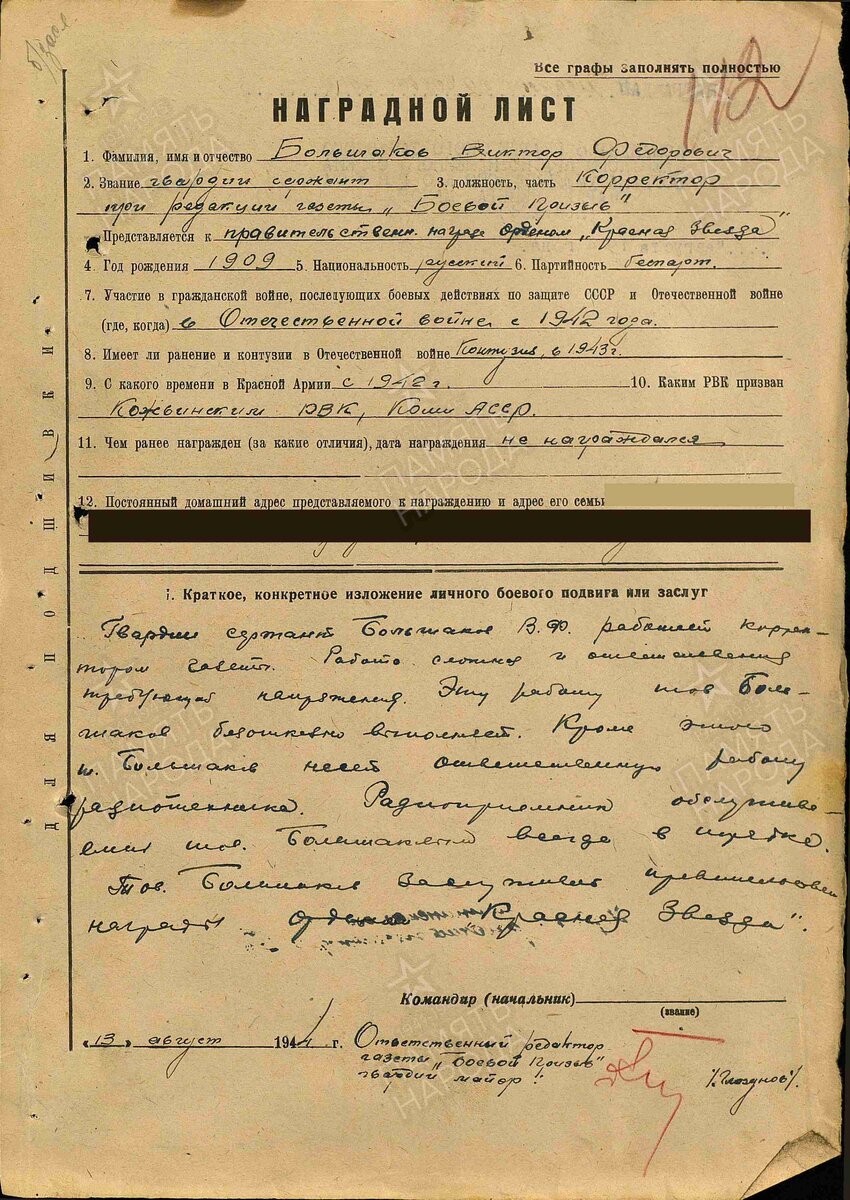 б/засл.
112
Все графы заполнять полностью
НАГРАДНОЙ ЛИСТ
1. Фамилия, имя и отчество Большаков Виктор Фёдорович
2. Звание гвардии сержант 3. должность, часть Корректор
при редакции газеты „Боевой Призыв"
Представляется к правительственн. награде Орденом „Красная Звезда"
4. Год рождения 1909 5. Национальность русский 6. Партийность беспарт.
7. Участие в гражданской войне, последующих боевых действиях по защите СССР и Отечественной войне
(где, когда) в Отечественной войне с 1942 года.
8. Имеет ли ранение и контузии в Отечественной войне Контузия, в 1943 г.
9. С какого времени в Красной Армии с 1942 г. 10. Каким РВК призван
Кожвинским РВК, Коми АССР.
11. Чем ранее награжден (за какие отличия), дата награждения не награждался
12. Постоянный домашний адрес представляемого к награждению и адрес его семьи
I. Краткое, конкретное изложение личного боевого подвига или заслуг
Гвардии сержант Большаков В.Ф. работает коррек-
тором газеты. Работа сложная и ответственная
требующая напряжения. Эту работу тов Боль-
шаков безошибочно выполняет. Кроме этого
т. Большаков несет ответственную работу
радиотехника. Радиоприемник обслуживае-
емый тов. Большаковым всегда в порядке.
Тов. Большаков заслуживает правительствен
награды Ордена „Красная Звезда".
Командир (начальник)
(звание)
„13" август 1944 г. Ответственный редактор
газеты „Боевой Призыв"
гвардии майор: /Глазунов/.
ДЛЯ ПОДШИВКИ
ПАМЯТЬ НАРОДА